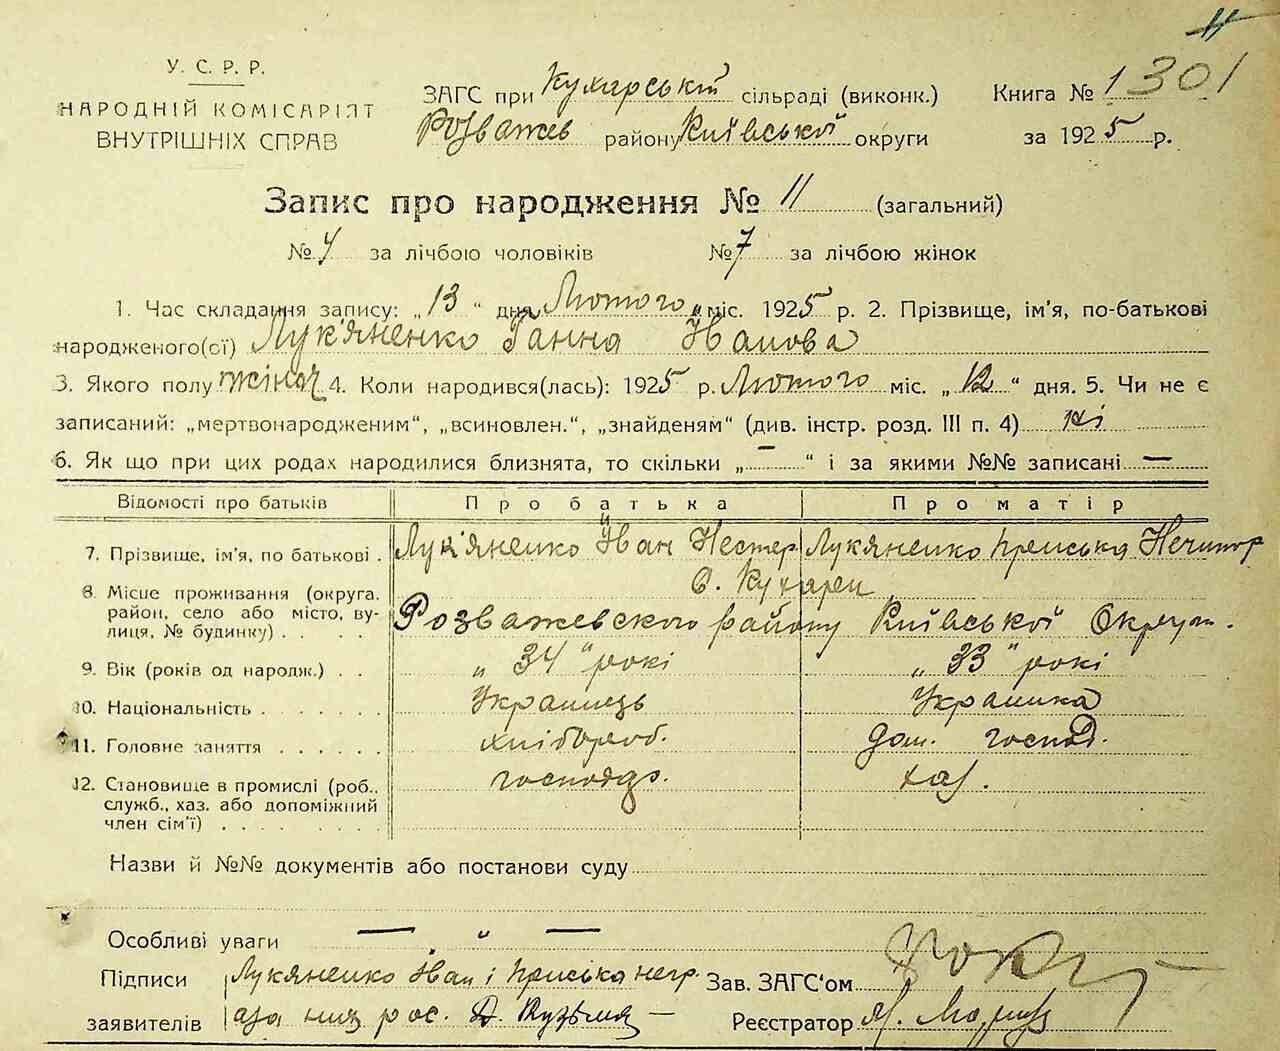 11
У. С. Р. Р.
НАРОДНІЙ КОМІСАРІЯТ
ВНУТРІШНІХ СПРАВ
ЗАГС при Кухарській сільраді (виконк.)
Розважев району Київської округи
Книга № 1301
за 1925 р.
Запис про народження № 11 (загальний)
№ 4 за лічбою чоловіків № 7 за лічбою жінок
1. Час складання запису: „13“ дня Лютого міс. 1925 р. 2. Прізвище, ім'я, по-батькові
народженого(ої) Лук'яненко Ганна Іванова
3. Якого полу жіноч 4. Коли народився(лась): 1925 р. Лютого міс. „12“ дня. 5. Чи не є
записаний: „мертвонародженим“, „всиновлен.“, „знайденям“ (див. інстр. розд. III п. 4) ні
6. Як що при цих родах народилися близнята, то скільки „—“ і за якими №№ записані —
Відомості про батьків Про батька Про матір
7. Прізвище, ім'я, по батькові . Лук'яненко Іван Нестер Лукяненко Приська Нечипор
8. Місце проживання (округа, район, село або місто, вулиця, № будинку) . . . . С. Кухарі
Розважевского району Київської Округи.
9. Вік (років од народж.) . . „34“ рокі „33“ рокі
10. Національність . . . . . Украинець Украинка
11. Головне заняття . . . . . . хлібороб. дом. господ.
12. Становище в промислі (роб., служб., хаз. або допоміжний член сім'ї) . . . . . . . господар. хаз.
Назви й №№ документів або постанови суду
Особливі уваги — „ —
Підписи Лукяненко Іван і Приська негр
заявителів аза них рос. Д. Кузьма —
Зав. ЗАГС'ом
Реєстратор М.